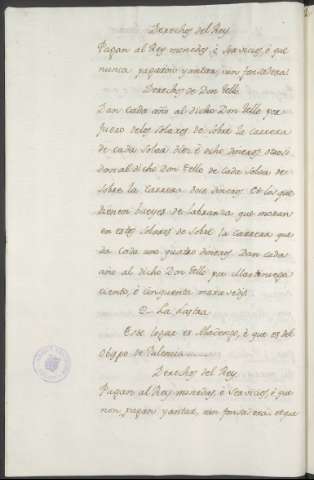 Derechos del Rey
Pagan al Rey monedas, è Servicios, è que
nunca pagaron yantar, nin fonsadera.
Derechos de Don Tello
Dan cada año al dicho Don Tello por
fuero de los Solares de sobre la carrera
de cada Solar diez è ocho dineros, otrosi
dan al dicho Don Tello de cada Solar de
sobre la carrera doce dineros. Et los que
tienen bueyes de labranza que moran
en estos Solares de sobre la carrera que
dà cada uno quatro dineros. Dan cada
año al dicho Don Tello por
ciento, è cinquenta maravedis.
La Lastra
Este logar es Abadengo, è que es del
Obispo de Palencia
Derechos del Rey
Pagan al Rey monedas, è Servicios, è que
non pagan yantar, nin fonsadera et que